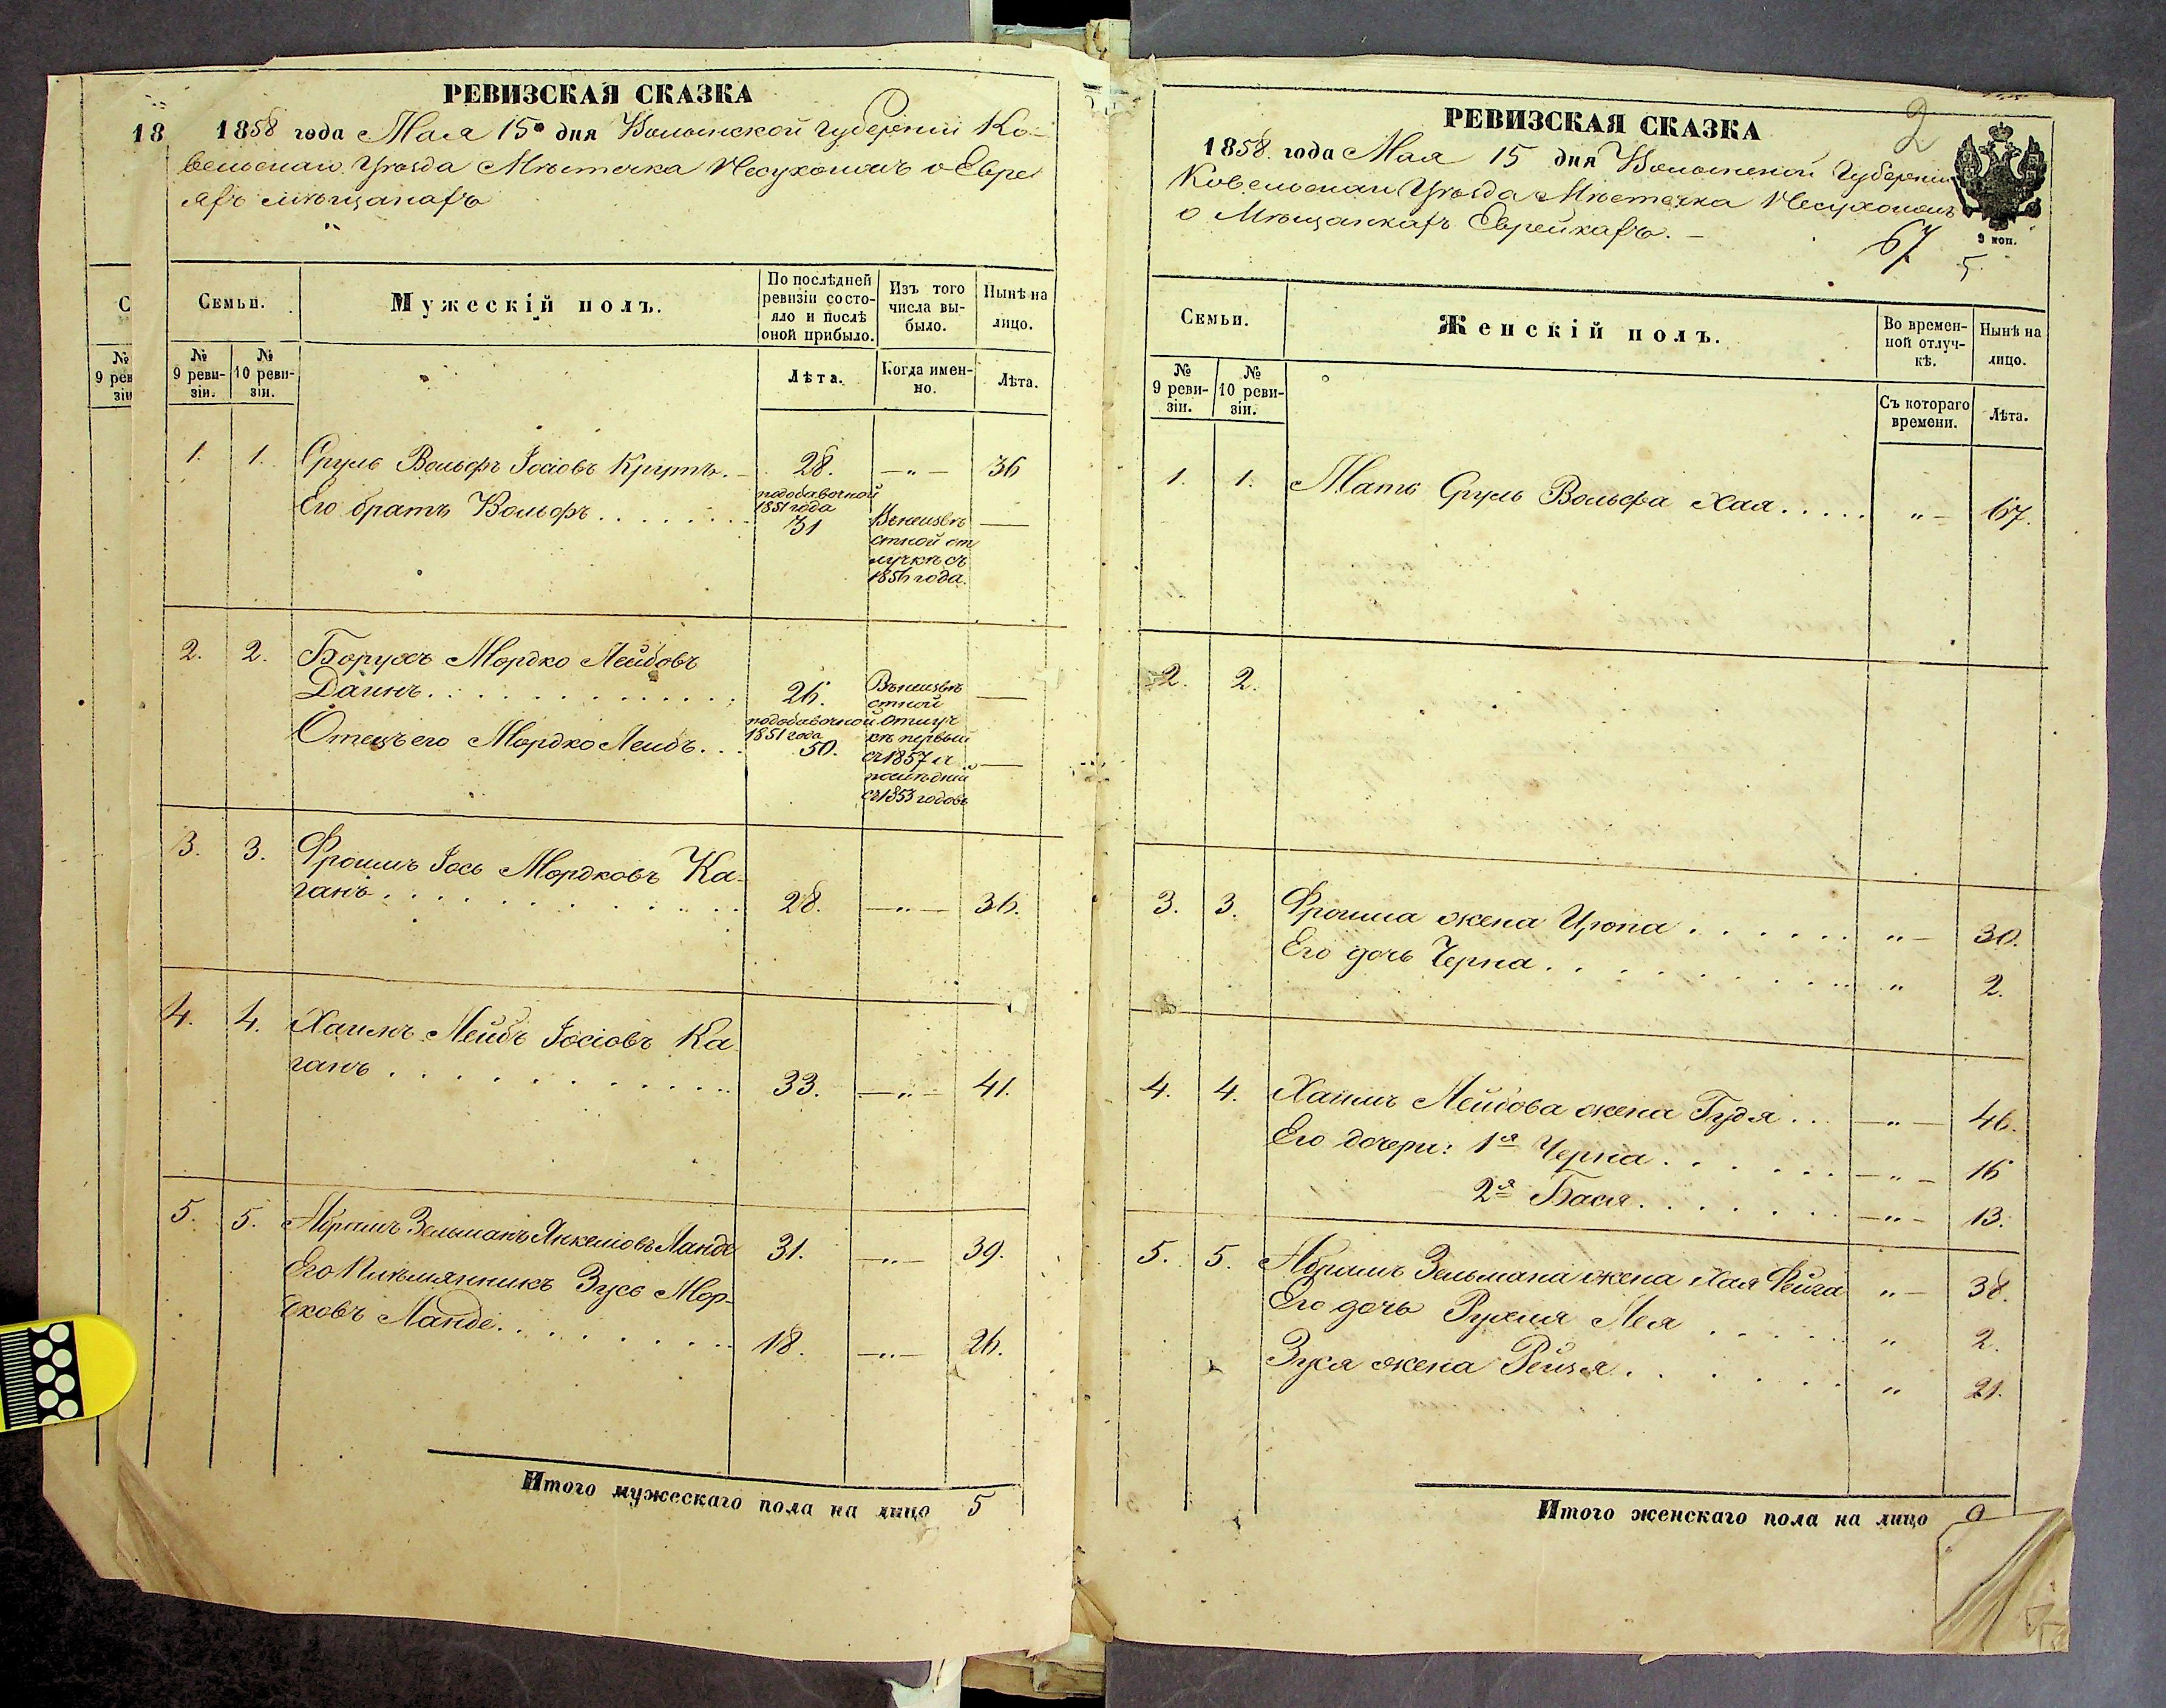 РЕВИЗСКАЯ СКАЗКА
18
1858 года Мая 15 дня Волынской Губерніи Ко-
вельскаго Уѣзда Мѣстечка Несухоижъ о Евре
яхъ мѣщанахъ
Семьи.
Мужескій полъ.
По послѣдней
ревизіи состо-
яло и послѣ
оной прибыло.
Изъ того
числа вы-
было.
Нынѣ на
лицо.
С
№
9 рев
зіи
№
9 реви-
зіи.
№
10 реви-
зіи.
Лѣта.
Когда имен-
но.
Лѣта.
1. 1. Сруль Вольфъ Іосіовъ Крутъ. 28. —"— 36
Его братъ Вольфъ
подобавочной
1851 года
31
Въ неизвѣ
стной от
лучкѣ съ
1856 года.
—
2. 2. Борухъ Мордко Лейбовъ
Даинъ. 26.
Въ неизвѣ
стной
Отецъ его Мордко Лейбъ.
подобавочной
1851 года
50.
отлуч
кѣ первый
съ 1857 и
послѣдній
съ 1853 годовъ
3. 3. Фроимъ Іось Мордковъ Ка-
ганъ 28. —"— 36.
4. 4. Хаимъ Лейбъ Іосіовъ Ка
ганъ 33. —"— 41.
5. 5. Абрамъ Зельманъ Янкеліовъ Ланде 31. —"— 39.
Его Племянникъ Зусь Мор-
дковъ Ланде. 18. —"— 26.
Итого мужескаго пола на лицо 5
РЕВИЗСКАЯ СКАЗКА
2
1858. года Мая 15 дня Волынской Губерніи
Ковельскаго Уѣзда Мѣстечка Несухоижъ
о Мѣщанкахъ Еврейкахъ.
9 коп.
67
5.
Семьи.
Женскій полъ.
Во времен-
ной отлуч-
кѣ.
Нынѣ на
лицо.
№
9 реви-
зіи.
№
10 реви-
зіи.
Съ котораго
времени.
Лѣта.
1. 1. Мать Сруль Вольфа Хая " — 67.
2. 2.
3. 3. Фроима жена Ципа " — 30.
Его дочь Черна " 2.
4. 4. Хаимъ Лейбова жена Гудя —"— 46.
Его дочери: 1я Черна —"— 16
2я Бася —"— 13.
5. 5. Абрамъ Зельмана жена Хая Фейга " — 38.
Его дочь Рухля Лея " 2.
Зуся жена Рейзя " 21.
Итого женскаго пола на лицо 9